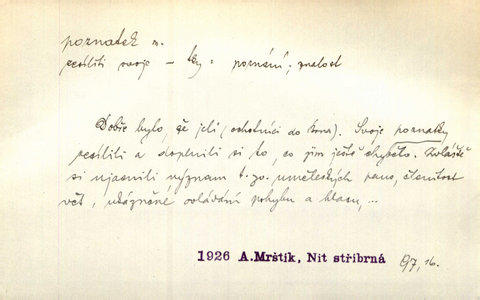 poznatek m.
zesíliti svoje – tky = poznání; znalost
Dobře bylo, že jeli (ochotníci do Brna). Svoje poznatky
zesílili a doplnili si to, co jim ještě chybělo. Zvláště
si ujasnili význam t. zv. uměleckých paus, členitost
vět, ukázněné ovládání pohybu a hlasu, ...
1926 A.Mrštík, Nit stříbrná 97, 16.